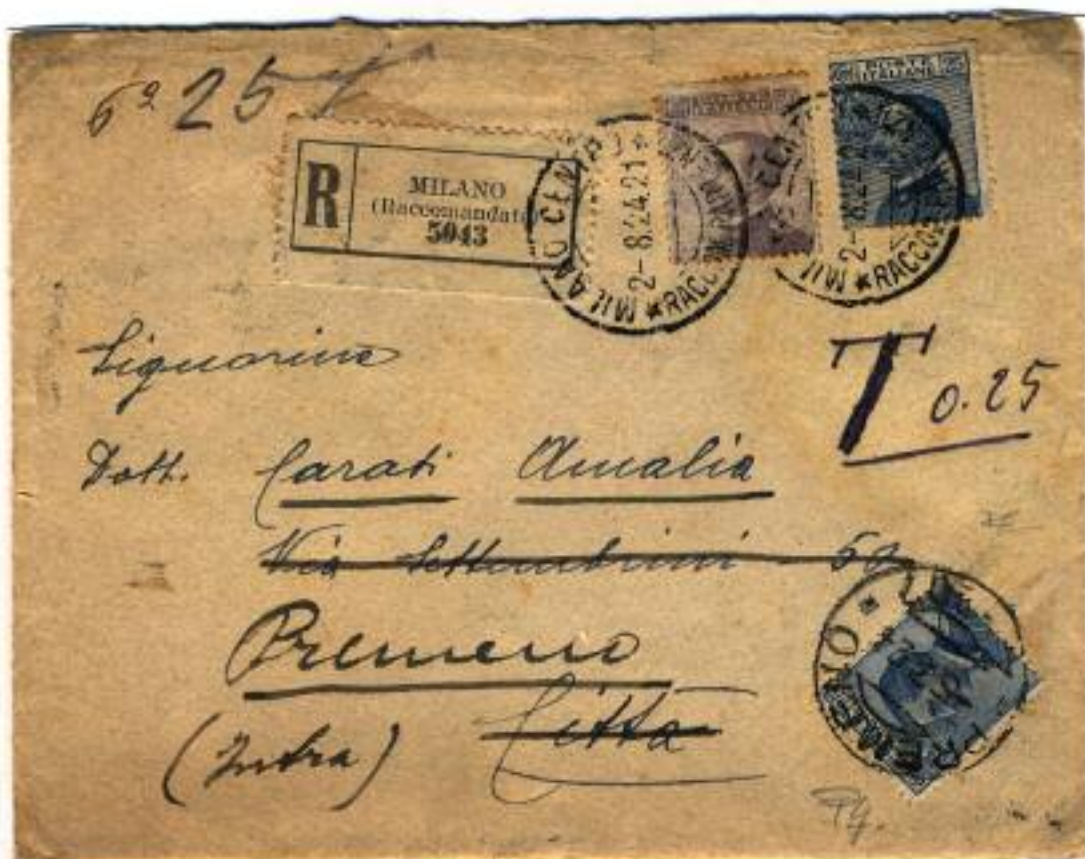 6a 25
R
MILANO
(Raccomandate)
5043
MILANO CENTRO * RACCOM
2-8.24.21
MIL CENT * RACCOM
2-8.24.2
POSTE ITALIANE
T 0.25
Signorina
Dott. Carati Amalia
Via Settembrini 50
Premeno
(Intra) Città
PREMENO